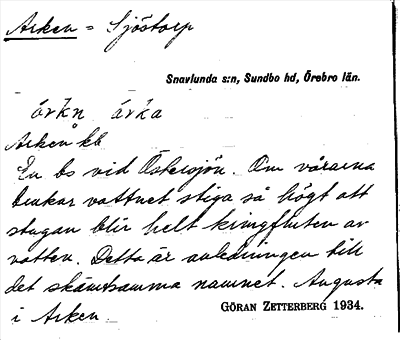 Arken = Sjöstorp
Snavlunda s:n, Sundbo hd, Örebro län.
árkn árka
Arken kb
En bs vid Östersjön. Om vårarna
brukar vattnet stiga så högt att
stugan blir helt kringfluten av
vatten. Detta är anledningen till
det skämtsamma namnet. Augusta
i Arken.
GÖRAN ZETTERBERG 1934.